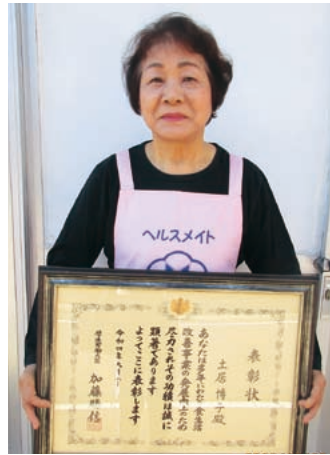 ヘルスメイト
表彰状
土居博子殿
あなたは多年にわたり食生活
改善事業の発展向上のため
尽力されその功績は誠に
顕著であります
よってここに表彰します
令和四年
厚生労働大臣 加藤勝信